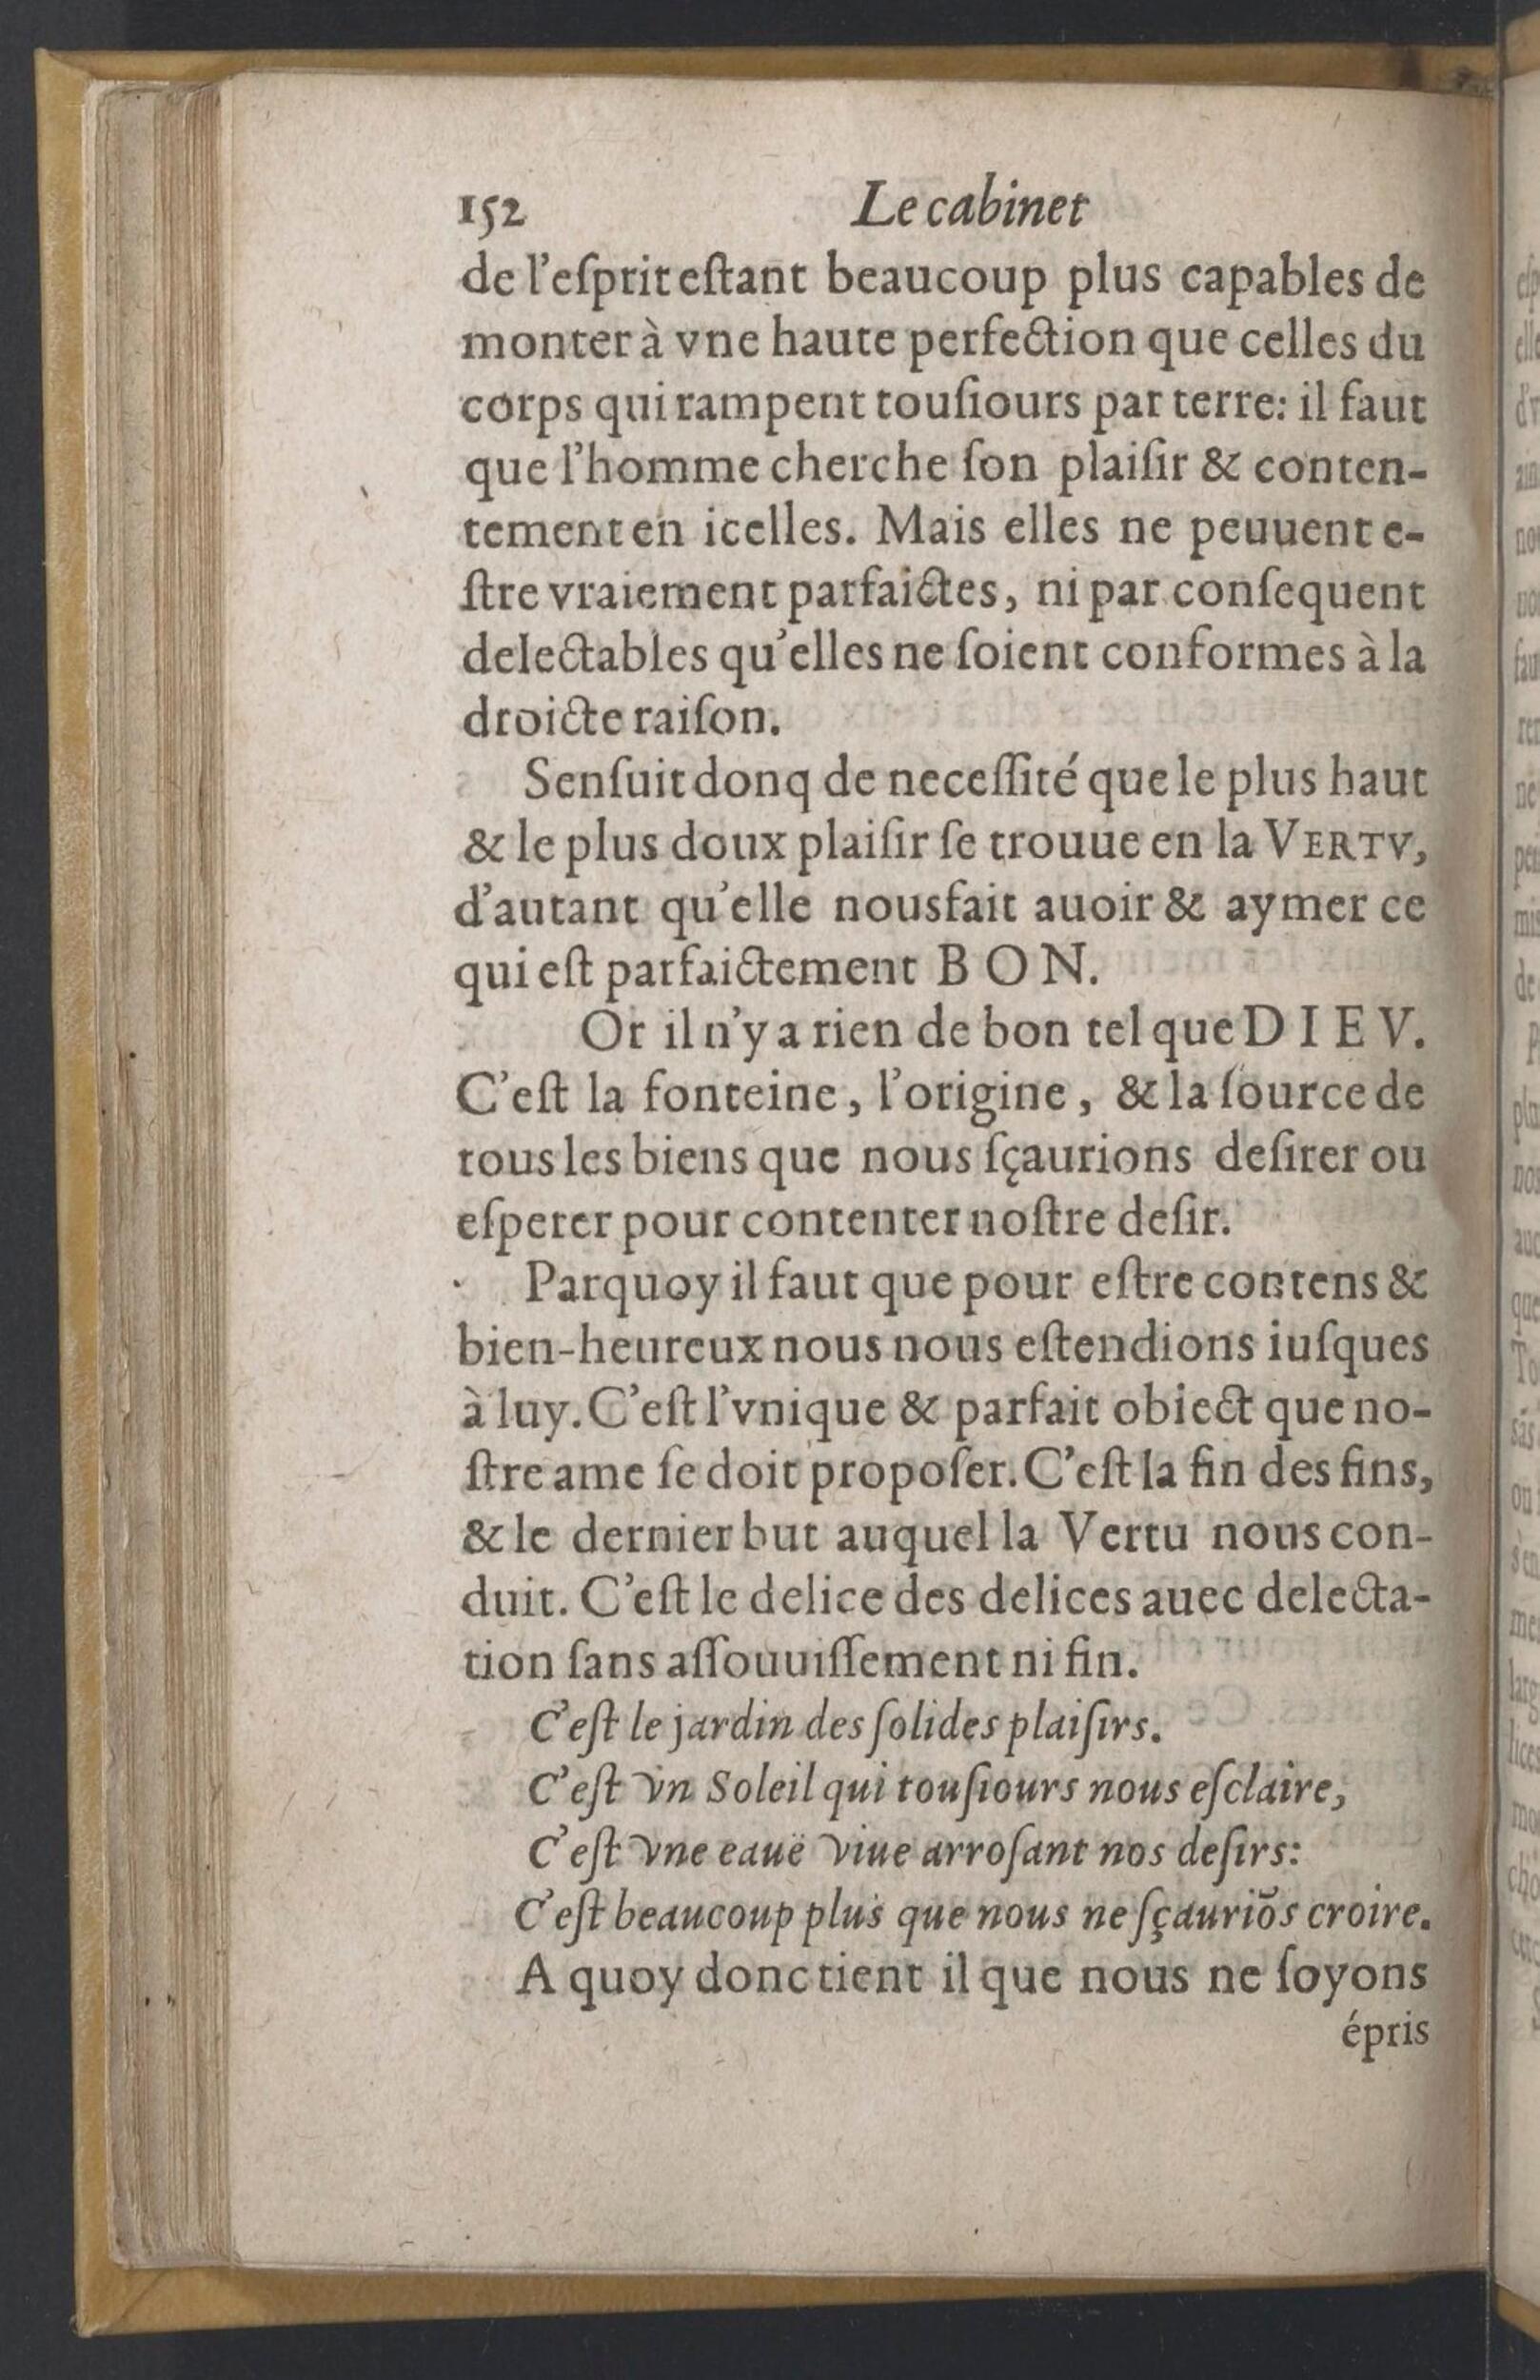 152 Le cabinet
de l'eſprit eſtant beaucoup plus capables de
monter à vne haute perfection que celles du
corps qui rampent touſiours par terre: il faut
que l'homme cherche ſon plaiſir & conten-
tement en icelles. Mais elles ne peuuent e-
ſtre vraiement parfaictes, ni par conſequent
delectables qu'elles ne ſoient conformes à la
droicte raiſon.
Senſuit donq de neceſſité que le plus haut
& le plus doux plaiſir ſe trouue en la VERTV,
d'autant qu'elle nousfait auoir & aymer ce
qui eſt parfaictement BON.
Or il n'y a rien de bon tel que DIEV.
C'eſt la fonteine, l'origine, & la ſource de
tous les biens que nous ſçaurions deſirer ou
eſperer pour contenter noſtre deſir.
Parquoy il faut que pour eſtre contens &
bien-heureux nous nous eſtendions iuſques
à luy. C'eſt l'vnique & parfait obiect que no-
ſtre ame ſe doit propoſer. C'eſt la fin des fins,
& le dernier but auquel la Vertu nous con-
duit. C'eſt le delice des delices auec delecta-
tion ſans aſſouuiſſement ni fin.
C'eſt le jardin des ſolides plaiſirs.
C'eſt vn Soleil qui touſiours nous eſclaire,
C'eſt vne eauë viue arroſant nos deſirs:
C'eſt beaucoup plus que nous ne ſçauriõs croire.
A quoy donc tient il que nous ne ſoyons
épris